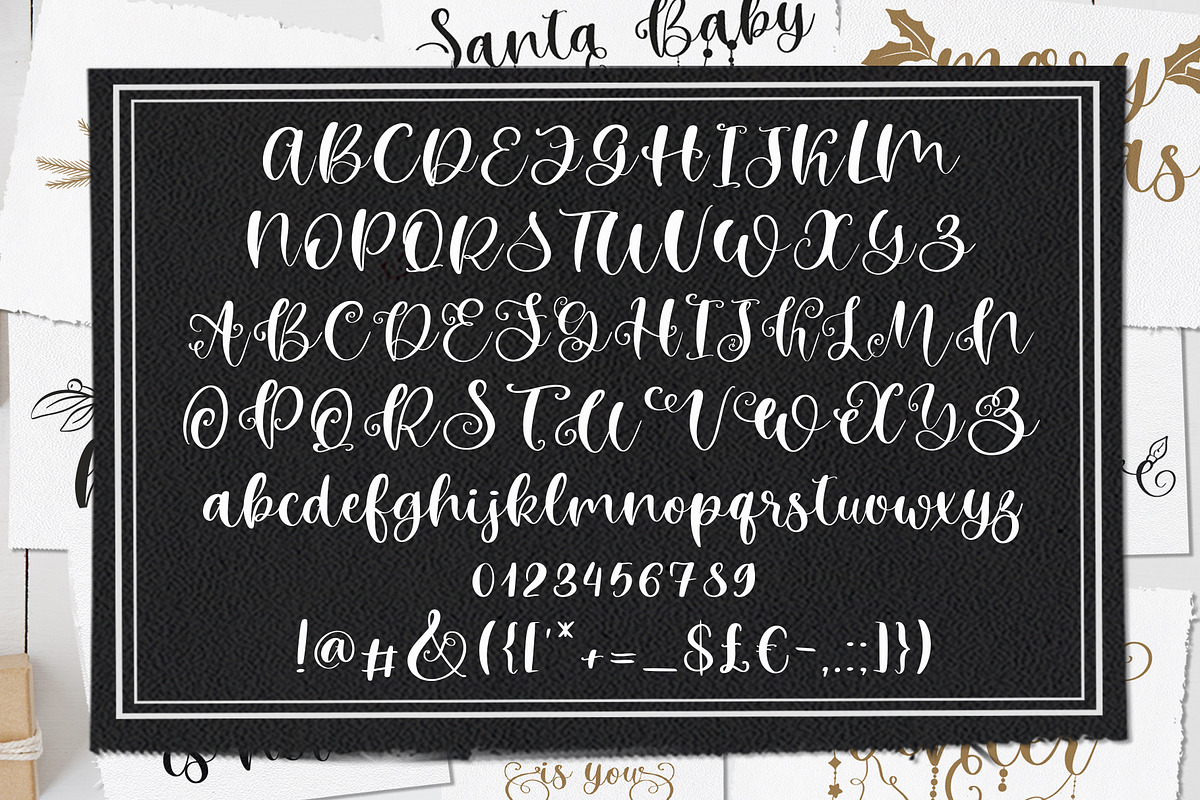 Santa Baby
ABCDEFGHIJKLM
NOPQRSTUVWXYZ
ABCDEFGHIJKLMN
OPQRSTUVWXYZ
abcdefghijklmnopqrstuvwxyz
0123456789
!@#&({['*+=_$£€-,.:;]})
is you